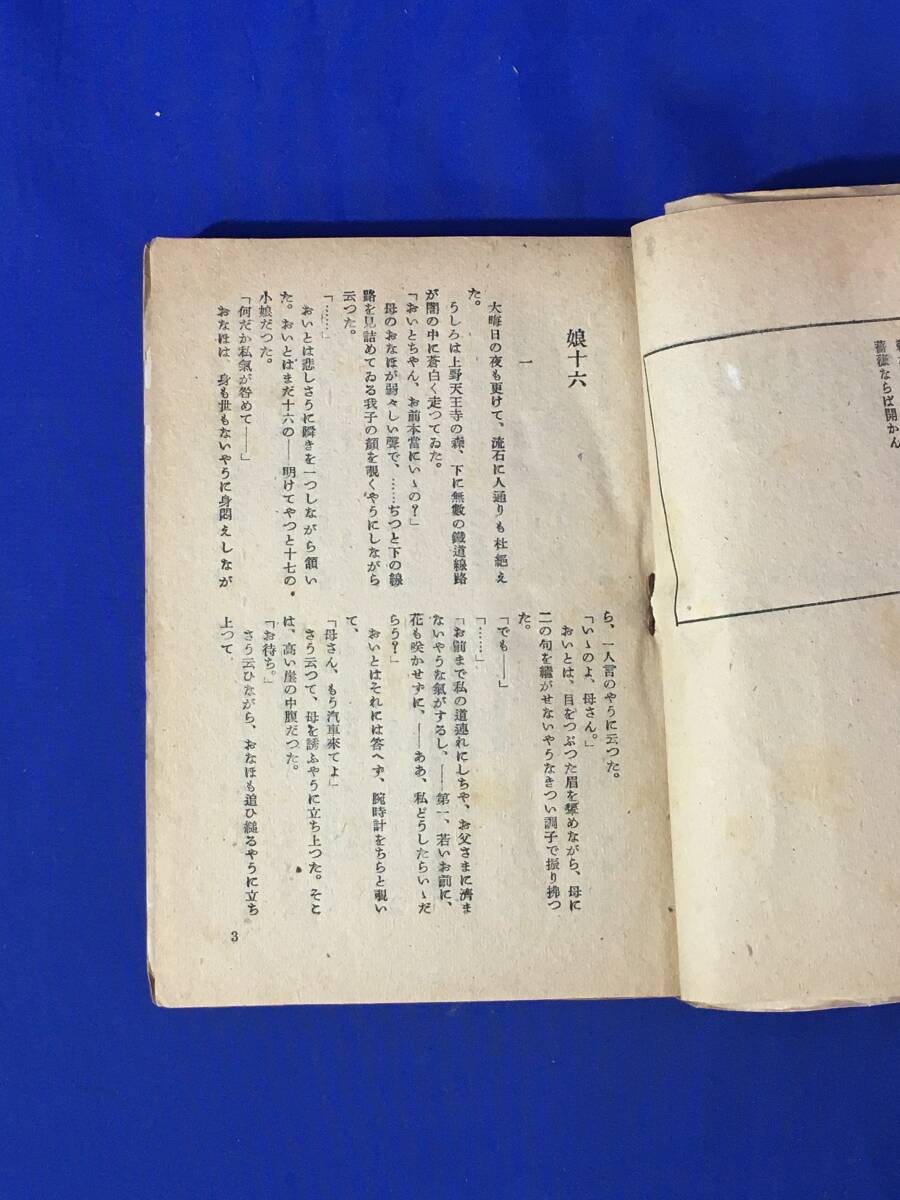 薔薇ならば開かん
娘十六
一
大晦日の夜も更けて、流石に人通りも杜絕え
た。
うしろは上野天王寺の森、下に無數の鐵道線路
が闇の中に蒼白く走つてゐた。
「おいとちやん、お前本當にいゝの?」
母のおなほが弱々しい聲で、……ぢつと下の線
路を見詰めてゐる我子の顏を覗くやうにしながら
云つた。
「……」
おいとは悲しさうに瞬きを一つしながら頷い
た。おいとはまだ十六の――明けてやつと十七の
小娘だつた。
「何だか私氣が咎めて――」
おなほは、身も世もないやうに身悶えしなが
ら、一人言のやうに云つた。
「いゝのよ、母さん。」
おいとは、目をつぶつた眉を顰めながら、母に
二の句を繼がせないやうなきつい調子で振り拂つ
た。
「でも――」
「……」
「お前まで私の道連れにしちや、お父さまに濟ま
ないやうな氣がするし、――第一、若いお前に、
花も咲かせずに、――ああ、私どうしたらいゝだ
らう?」
おいとはそれには答へず、腕時計をちらと覗い
て、
「母さん、もう汽車來てよ」
さう云つて、母を誘ふやうに立ち上つた。そこ
は、高い崖の中腹だつた。
「お待ち。」
さう云ひながら、おなほも追ひ縋るやうに立ち
上つて、
3